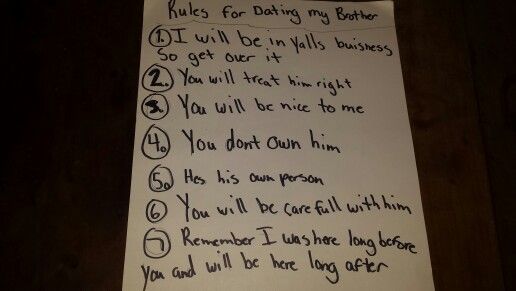 Rules for Dating my Brother
1. I will be in Yalls buisness
So get over it
2. You will treat him right
3. You will be nice to me
4. You dont own him
5. Hes his own person
6 You will be carefull with him
7 Remember I was here long before
you and will be here long after